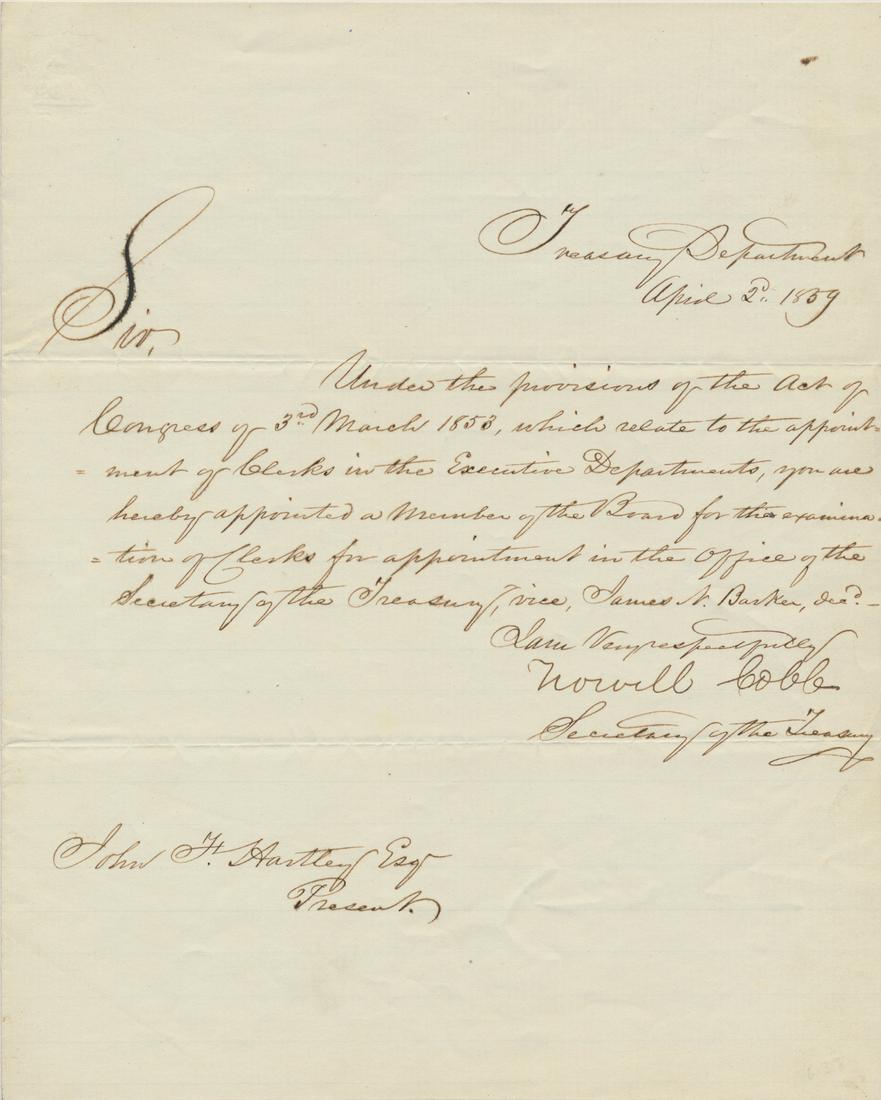 Treasury Department
April 2d. 1859
Sir,
Under the provisions of the Act of
Congress of 3rd March 1853, which relate to the appoint=
=ment of Clerks in the Executive Departments, you are
hereby appointed a Member of the Board for the examina=
=tion of Clerks for appointment in the Office of the
Secretary of the Treasury, vice, James N. Barker, decd.
I am Very respectfully
Howell Cobb
Secretary of the Treasury
John F. Hartley Esq
Present.